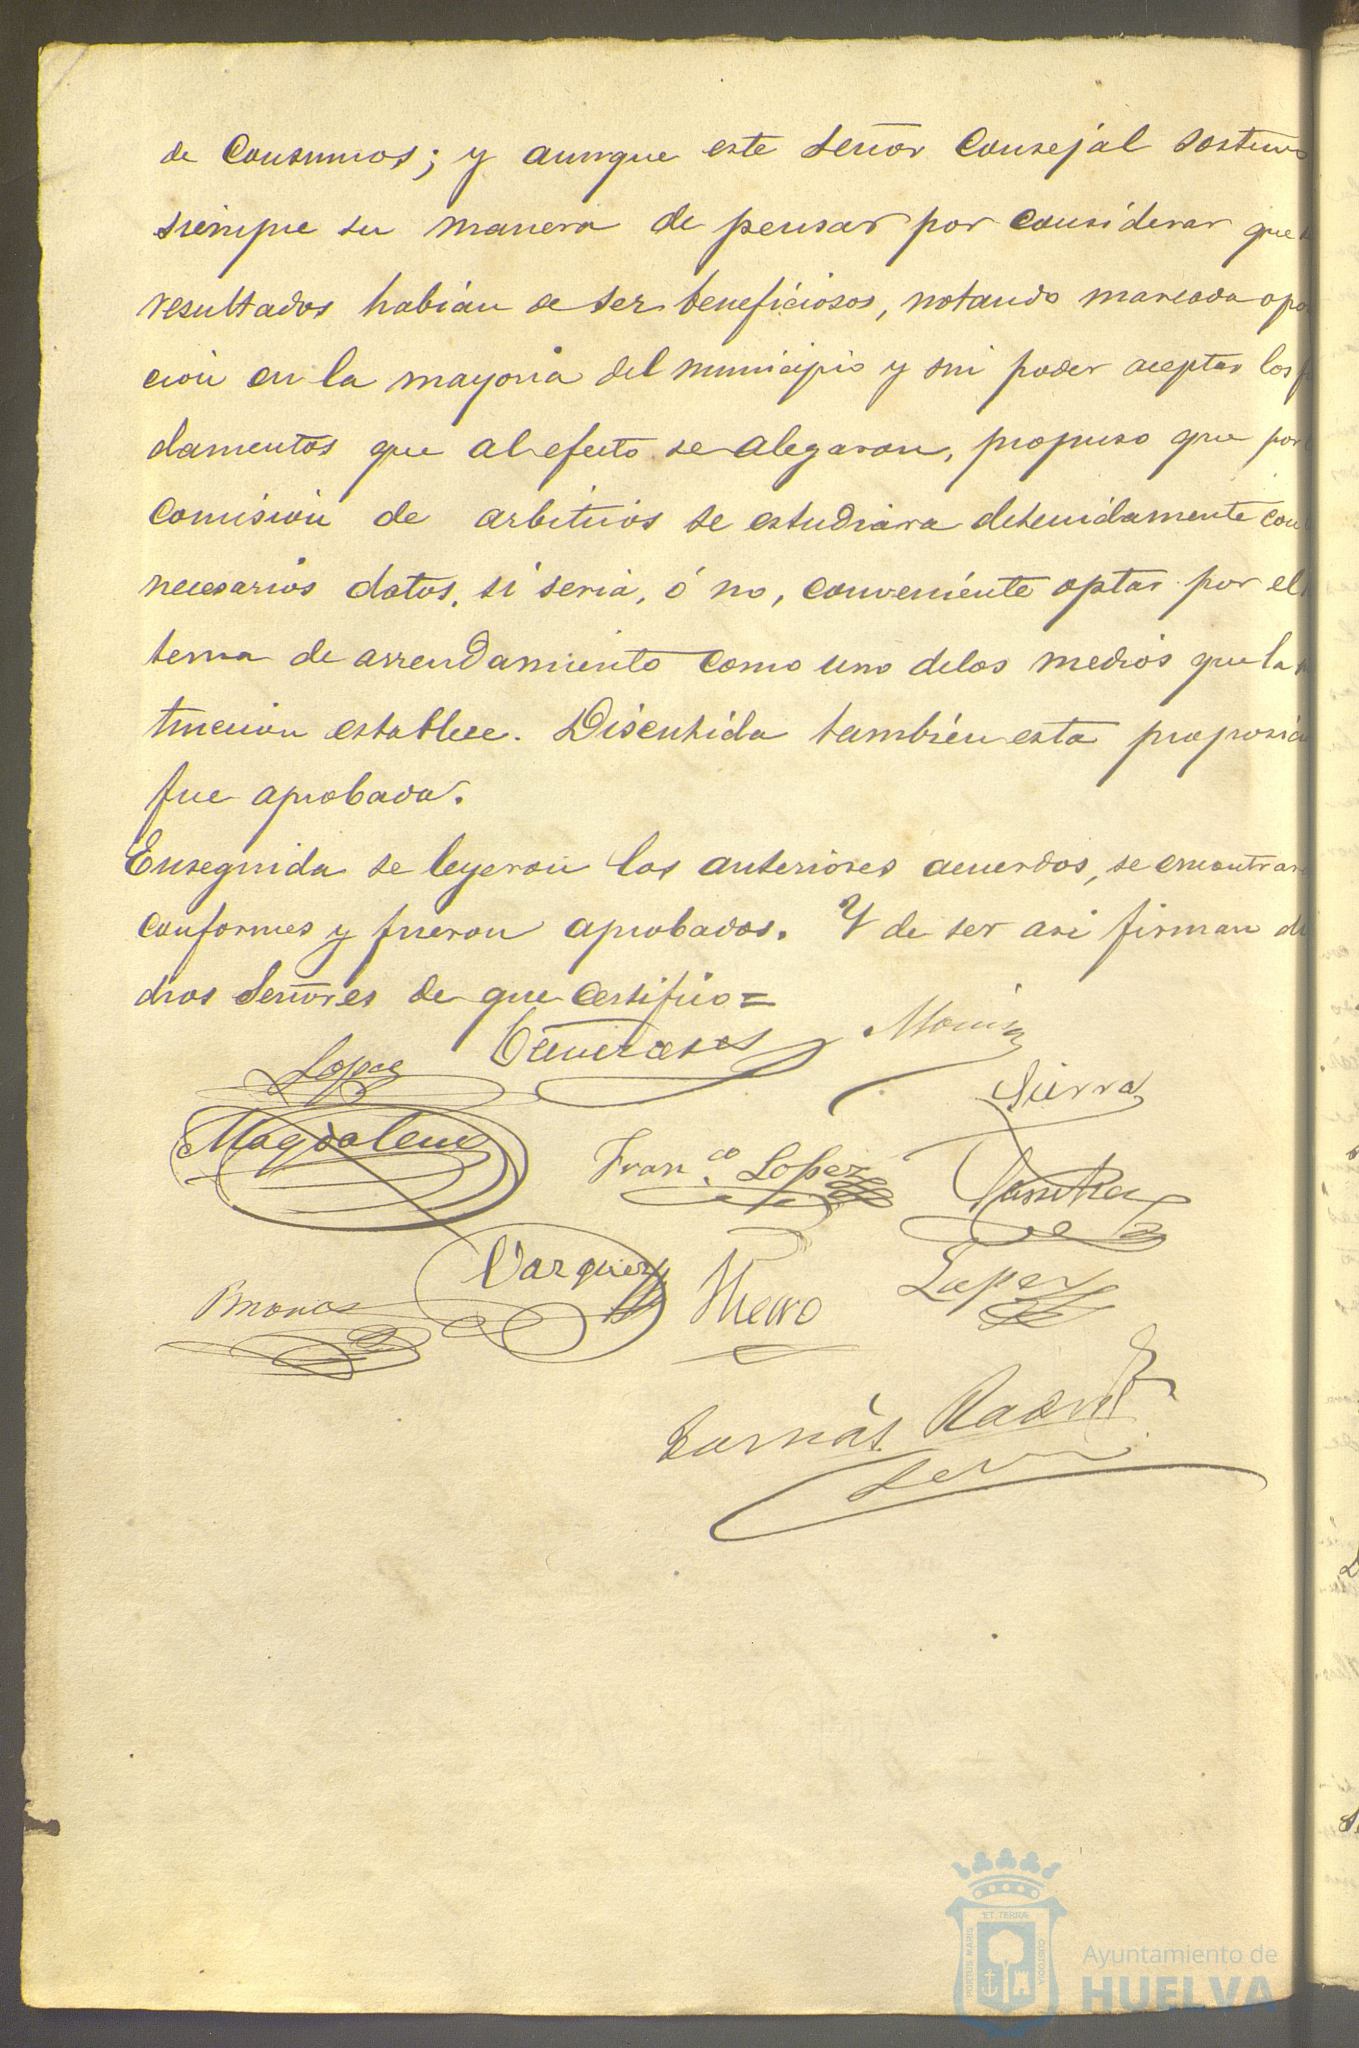 de Consumos; y aunque este Señor Consejal sostuvo
siempre su manera de pensar por considerar que
resultados habían de ser beneficiosos, notando marcada opo
ción en la mayoría del municipio y sin poder aceptar los
damentos que al efecto se alegaron, propuso que por
Comisión de arbitrios se estudiara detenidamente con
necesarios datos, si sería, ó no, conveniente optar por el
tema de arrendamiento como uno de los medios que la
trucción establece. Discutida también esta proposició
fue aprobada.
Enseguida se leyeron los anteriores acuerdos, se encontraro
conformes y fueron aprobados. Y de ser asi firman di
chos Señores de que certifico=
Lopez
Sierra
Magdalena
Fran.co Lopez
Vazquez
Lopez
ET TERRÆ
PORTUS MARIS
CUSTODIA
Ayuntamiento de
HUELVA